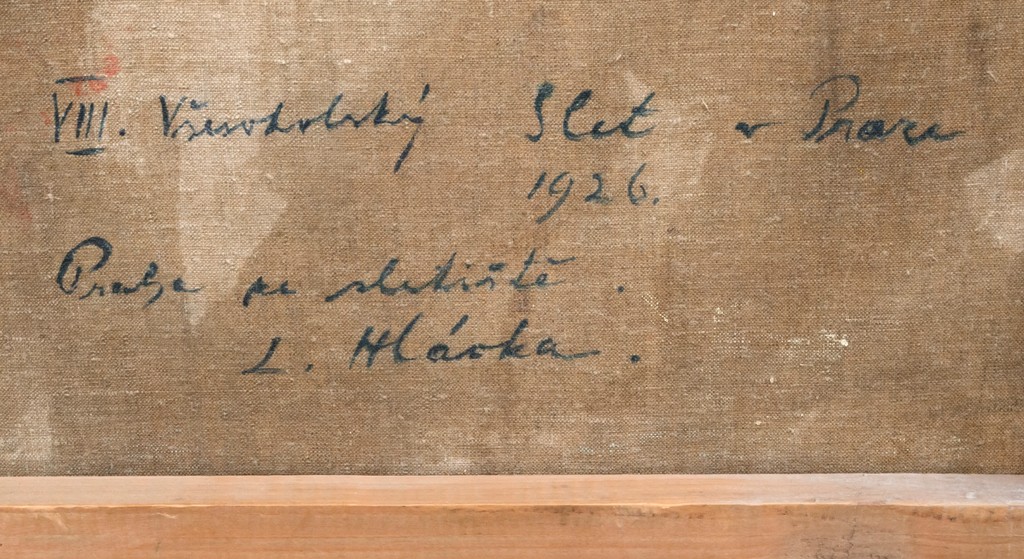 VIII. Všesokolský Slet v Praze
1926.
Praha na sletiště.
L. Hlávka.